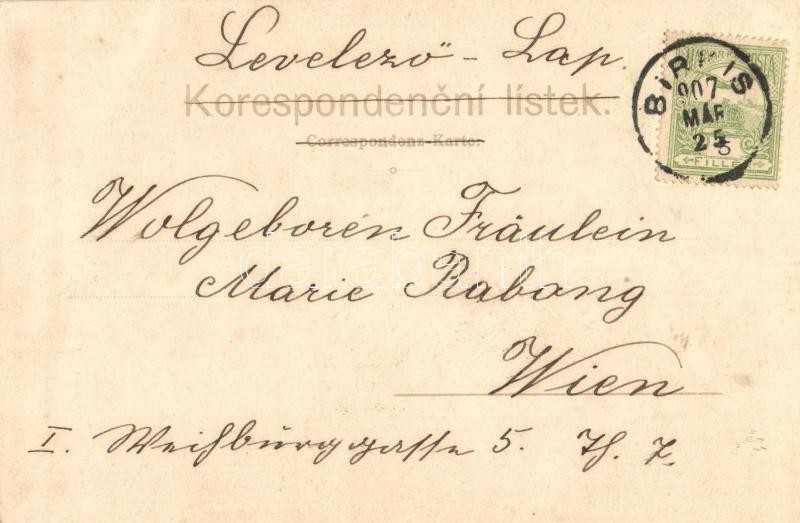 Levelező - Lap.
Korespondenční lístek.
Correspondenz-Karte.
907
MÁR
25
FILLÉR
Wolgeboren Fräulein
Marie Rabong
Wien
I. Weihburggasse 5. Th. 7.